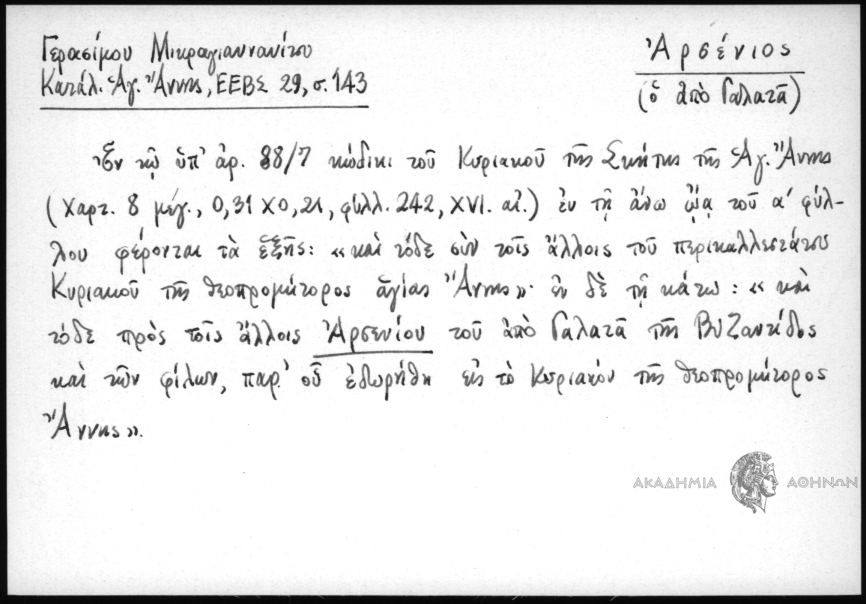 Γερασίμου Μικραγιαννανίτου
Κατάλ. Ἁγ. Ἄννης, ΕΕΒΣ 29, σ. 143
Ἀρσένιος
(ὁ ἀπὸ Γαλατᾶ)
Ἐν τῷ ὑπ' ἀρ. 88/7 κώδικι τοῦ Κυριακοῦ τῆς Σκήτης τῆς Ἁγ. Ἄννης
(χαρτ. 8 μέγ., 0,31 Χ 0,21, φύλλ. 242, XVI. αἰ.) ἐν τῇ ἄνω ᾤᾳ τοῦ α' φύλ-
λου φέρονται τὰ ἑξῆς: «καὶ τόδε σὺν τοῖς ἄλλοις τοῦ περικαλλεστάτου
Κυριακοῦ τῆς θεοπρομήτορος ἁγίας Ἄννης»· ἐν δὲ τῇ κάτω: «καὶ
τόδε πρὸς τοῖς ἄλλοις Ἀρσενίου τοῦ ἀπὸ Γαλατᾶ τῆς Βυζαντίδος
καὶ τῶν φίλων, παρ' οὗ ἐδωρήθη εἰς τὸ Κυριακὸν τῆς θεοπρομήτορος
Ἄννης».
ΑΚΑΔΗΜΙΑ ΑΘΗΝΩΝ